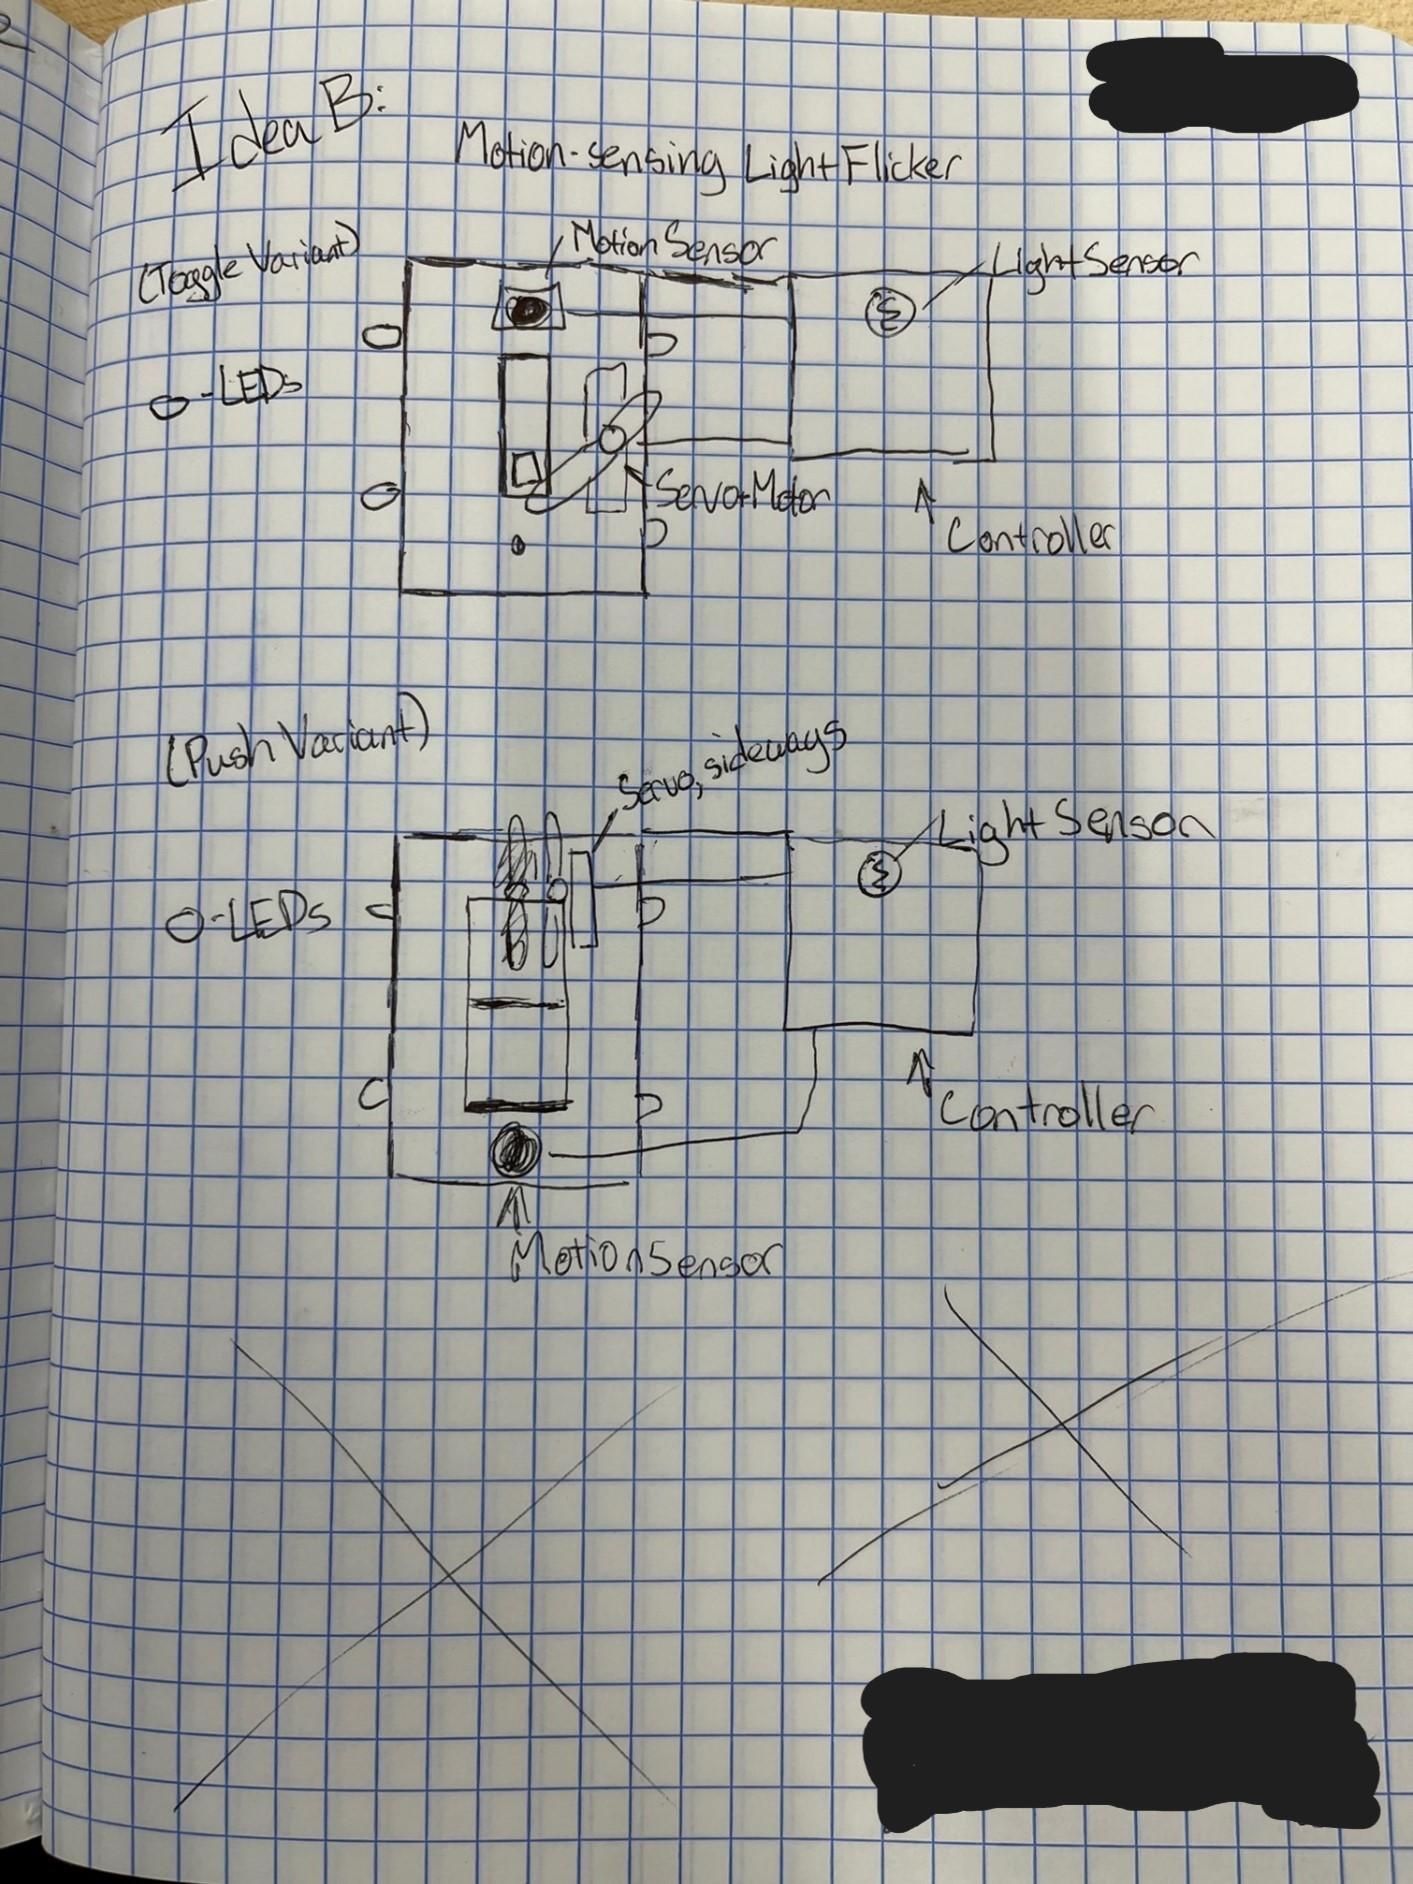 Idea B:
Motion-sensing Light Flicker
(Toggle Variant)
Motion Sensor
Light Sensor
O-LEDs
Servo Motor
Controller
(Push Variant)
Servo, sideways
Light Sensor
O-LEDs
Controller
Motion Sensor